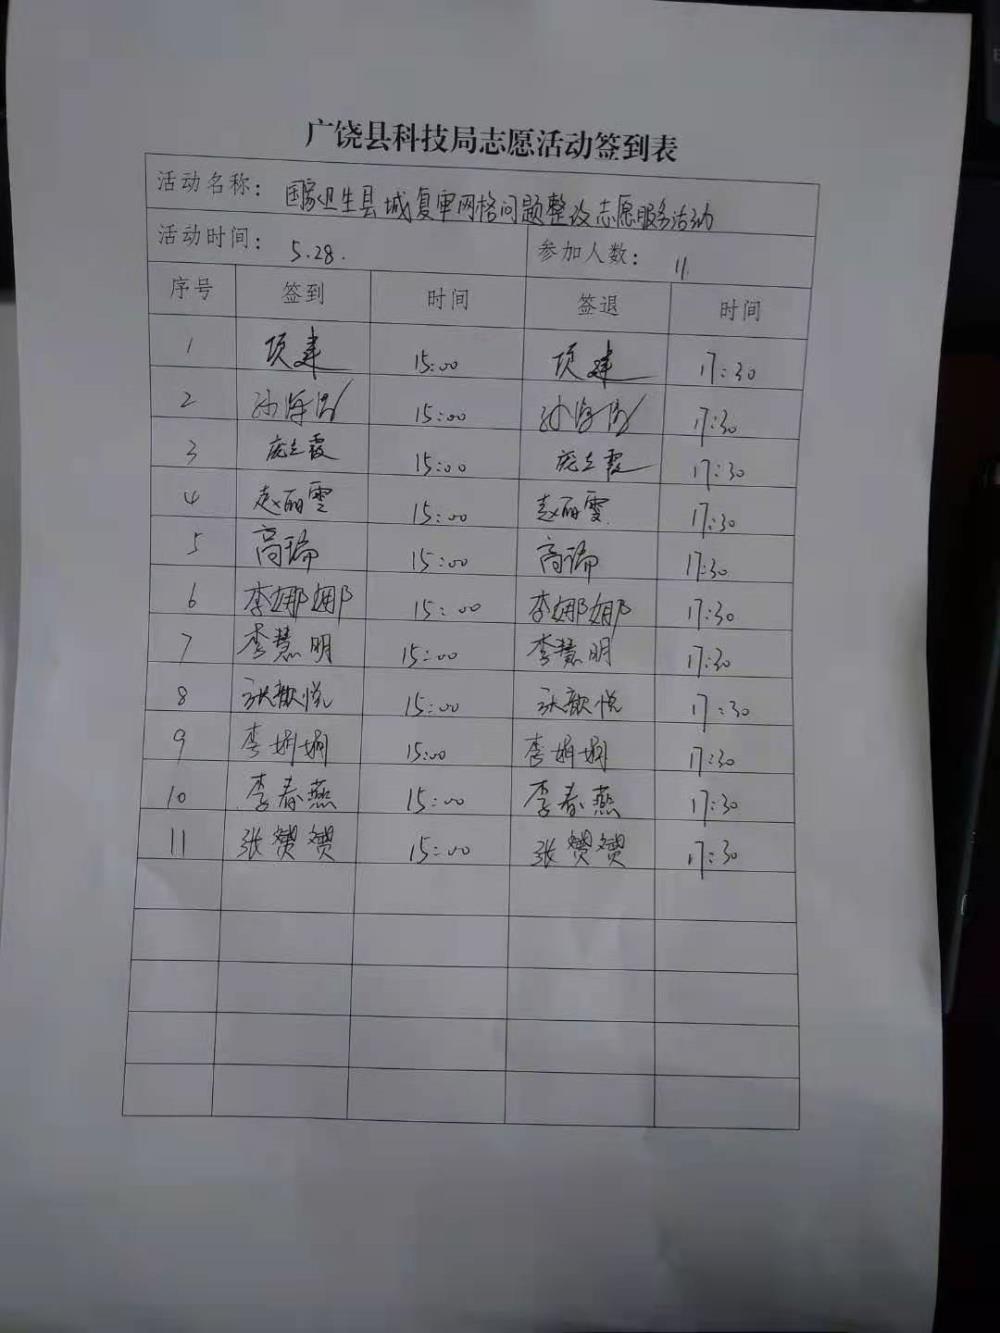 广饶县科技局志愿活动签到表
活动名称： 国家卫生县城复审网格问题整改志愿服务活动
活动时间： 5.28. 参加人数： 11.
序号 签到 时间 签退 时间
1 项建 15:00 项建 17:30
2 孙海 15:00 孙海 17:30
3 庞立霞 15:00 庞立霞 17:30
4 赵丽雯 15:00 赵丽雯 17:30
5 高瑞 15:00 高瑞 17:30
6 李娜娜 15:00 李娜娜 17:30
7 李慧明 15:00 李慧明 17:30
8 张歆悦 15:00 张歆悦 17:30
9 李娟娟 15:00 李娟娟 17:30
10 李春燕 15:00 李春燕 17:30
11 张赟赟 15:00 张赟赟 17:30